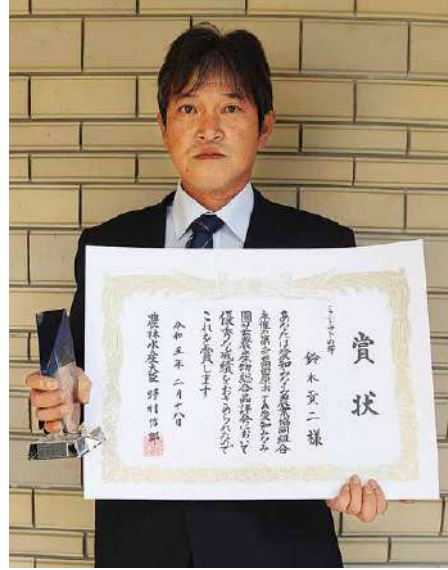 賞状
の部
鈴木貢二様
あなたは愛知みなみ農業協同組合
主催の第 田原市JA愛知みなみ
園芸農産物総合品評会において
優秀な成績をおさめられたので
これを賞します
令和五年二月十八日
農林水産大臣 野村哲郎